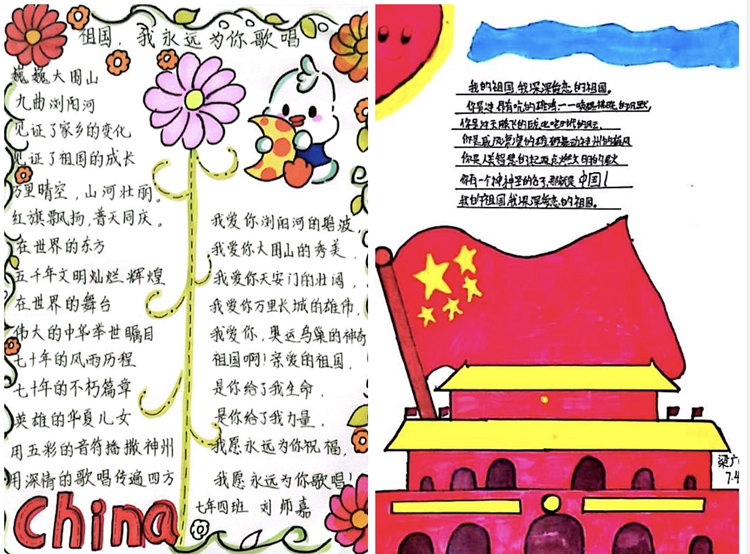 祖国，我永远为你歌唱
巍巍大围山
九曲浏阳河
见证了家乡的变化
见证了祖国的成长
万里晴空，山河壮丽。
红旗飘扬，普天同庆。
在世界的东方
五千年文明灿烂辉煌
在世界的舞台
伟大的中华举世瞩目
七十年的风雨历程
七十年的不朽篇章
英雄的华夏儿女
用五彩的音符播撒神州
用深情的歌唱传遍四方
我爱你浏阳河的碧波，
我爱你大围山的秀美，
我爱你天安门的壮阔，
我爱你万里长城的雄伟，
我爱你，奥运鸟巢的神奇
祖国啊！亲爱的祖国，
是你给了我生命，
是你给了我力量，
我愿永远为你祝福，
我愿永远为你歌唱！
China
七年四班 刘师嘉
我的祖国，我深深爱恋的祖国。
你是
你是
你是
你是人类智慧的
你有一个神圣的名字，那就是中国！
我的祖国，我深深爱恋的祖国。
梁广
7.4